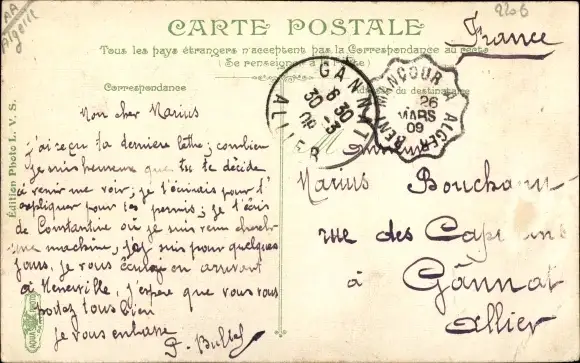 AA
Algérie
2206
CARTE POSTALE
France
Tous les pays étrangers n'acceptent pas la Correspondance au recto
(Se renseigner à la Poste)
Correspondance
Adresse du destinataire
Édition Photo L. V. S.
GANNAT
6 30
30 -3
09
ALLIER
BENI MANÇOUR A ALGER
26
MARS
09
Mon cher Marius
j'ai reçu ta dernière lettre; combien
je suis heureux que tu te décide
à venir me voir; je t'écrirais pour t'
expliquer pour les permis; je t'écris
de Constantine où je suis venu cherch
une machine, j'y suis pour quelques
jours, je vous écrirai en arrivant
à Ménerville, j'espère que vous vous
portez tous bien
je vous embrasse
Marius
rue des
à Gannat
Allier